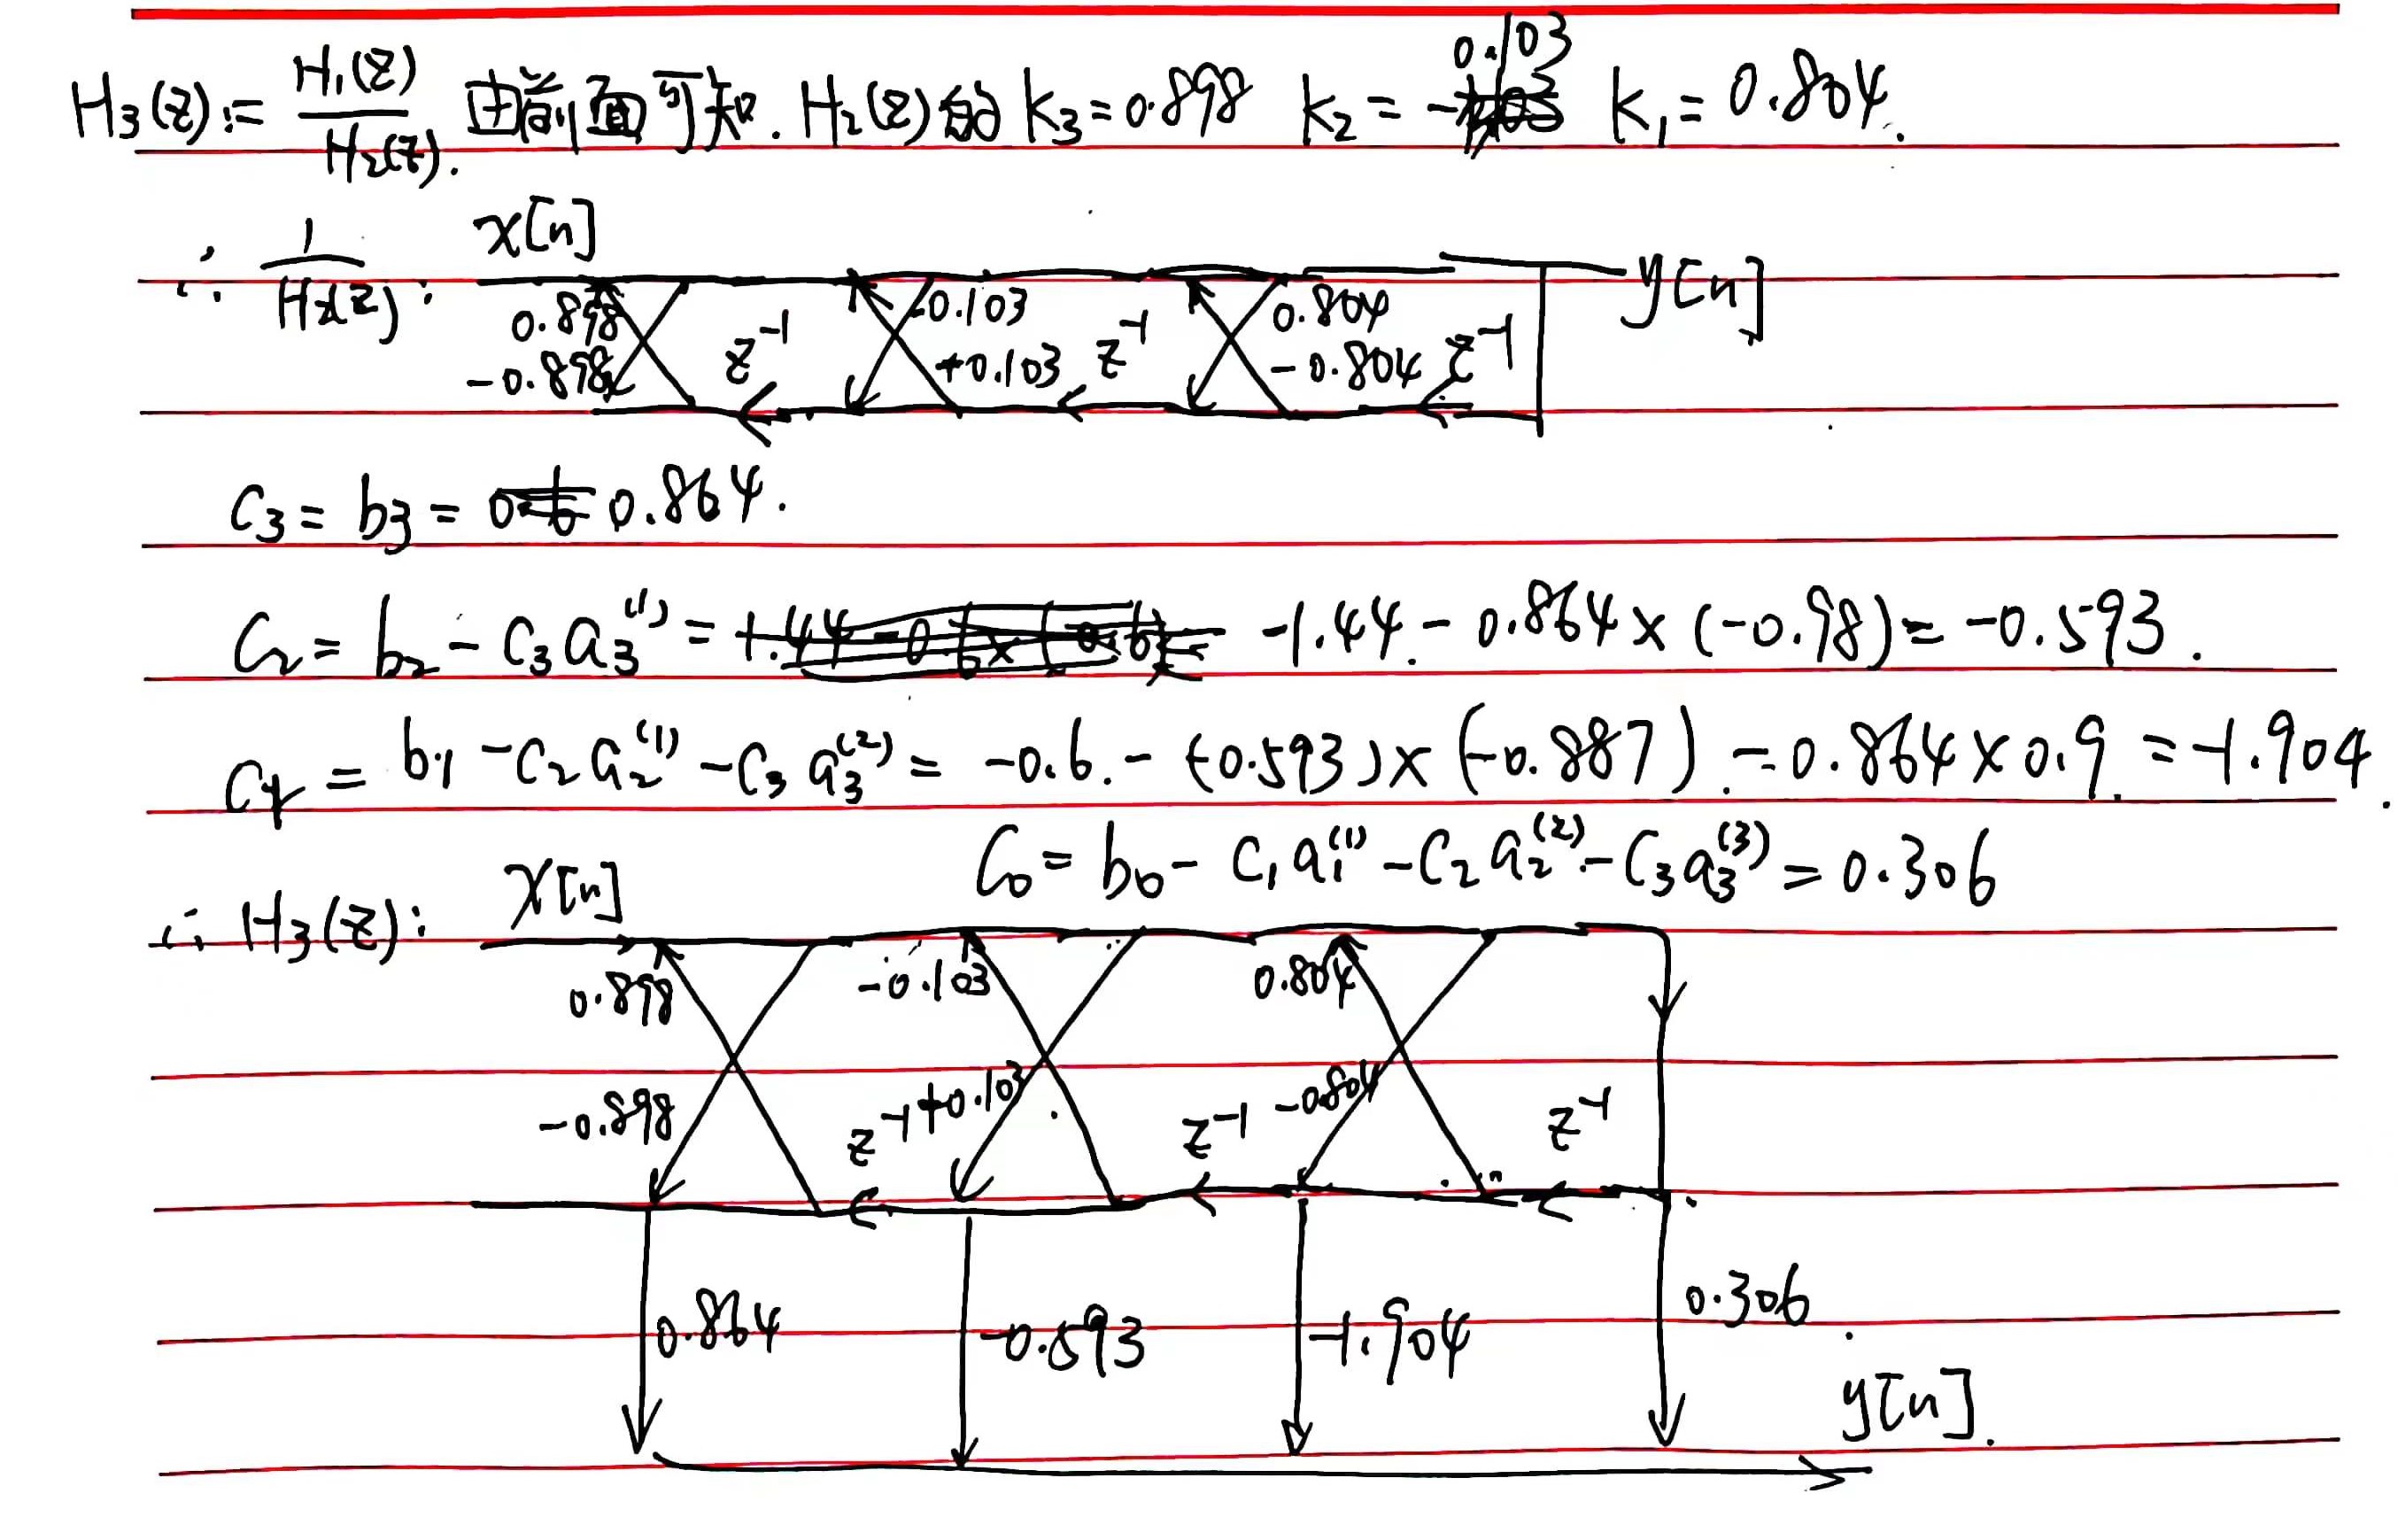 H₃(z):= H₁(z)/H₂(z). 由前面可知. H₂(z)的 k₃=0.898 k₂=-0.103 k₁=0.804.
∴ 1/H₂(z): x[n] y[n]
0.898 -0.103 0.804
-0.898 z⁻¹ +0.103 z⁻¹ -0.804 z⁻¹
C₃= b₃ = 0.864.
C₂= b₂-C₃a₃⁽¹⁾= -1.44.-0.864×(-0.98)=-0.593.
C₁ = b₁-C₂a₂⁽¹⁾-C₃a₃⁽²⁾= -0.6.-(-0.593)×(-0.887).-0.864×0.9.=-1.904.
C₀= b₀- C₁a₁⁽¹⁾-C₂a₂⁽²⁾-C₃a₃⁽³⁾=0.306
∴ H₃(z): x[n]
0.898 -0.103 0.804
-0.898 z⁻¹ +0.103 z⁻¹ -0.804 z⁻¹
0.864 -0.593 -1.904 0.306.
y[n].